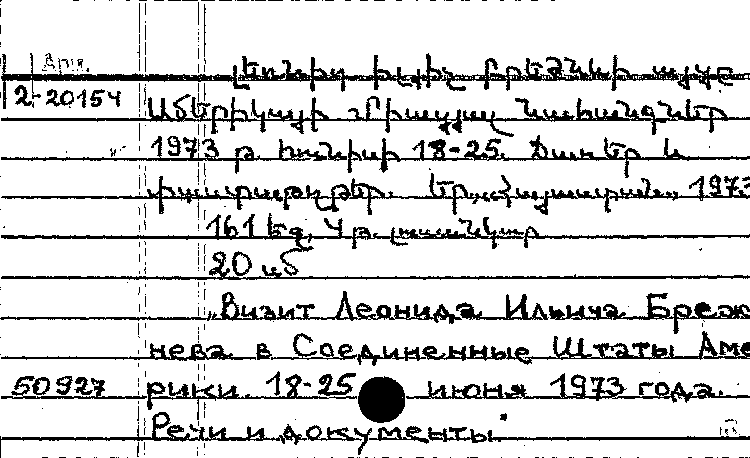 Արմ.
Լեոնիդ Իլյիչ Բրեժնևի այցը
2-20154
Ամերիկայի Միացյալ Նահանգներ
1973 թ. հունիսի 18-25. Ճառեր և
փաստաթղթեր. Եր., «Հայաստան», 1973
161 եզ, 4 թ. լուսանկար
20 սմ
„Визит Леонида Ильича Бреж
нева в Соединенные Штаты Аме
50927 рики. 18-25 июня 1973 года.
Речи и документы"